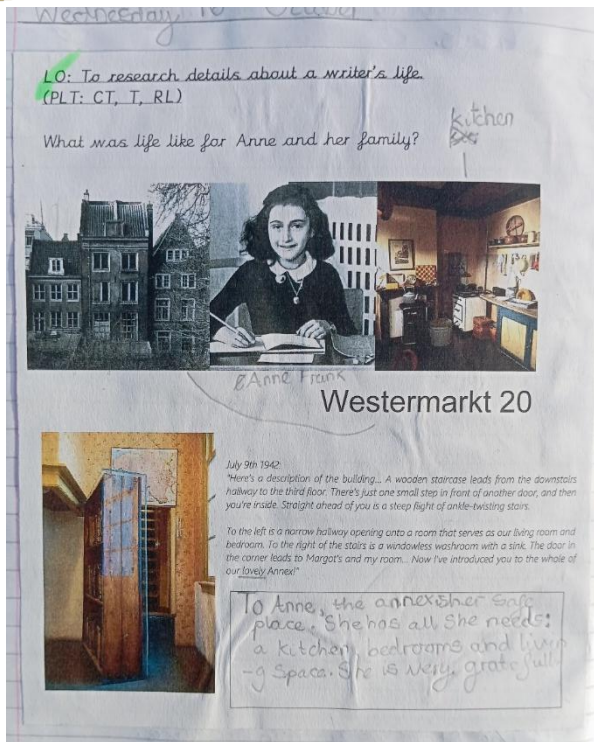 Wednesday 16
LO: To research details about a writer's life.
(PLT: CT, T, RL)
Kitchen
What was life like for Anne and her family?
Anne Frank
Westermarkt 20
July 9th 1942:
"Here's a description of the building... A wooden staircase leads from the downstairs
hallway to the third floor. There's just one small step in front of another door, and then
you're inside. Straight ahead of you is a steep flight of ankle-twisting stairs.
To the left is a narrow hallway opening onto a room that serves as our living room and
bedroom. To the right of the stairs is a windowless washroom with a sink. The door in
the corner leads to Margot's and my room... Now I've introduced you to the whole of
our lovely Annex!"
To Anne, the annex is her safe
place. She has all she needs:
a kitchen, bedrooms and livin
-g space. She is very, gratefull